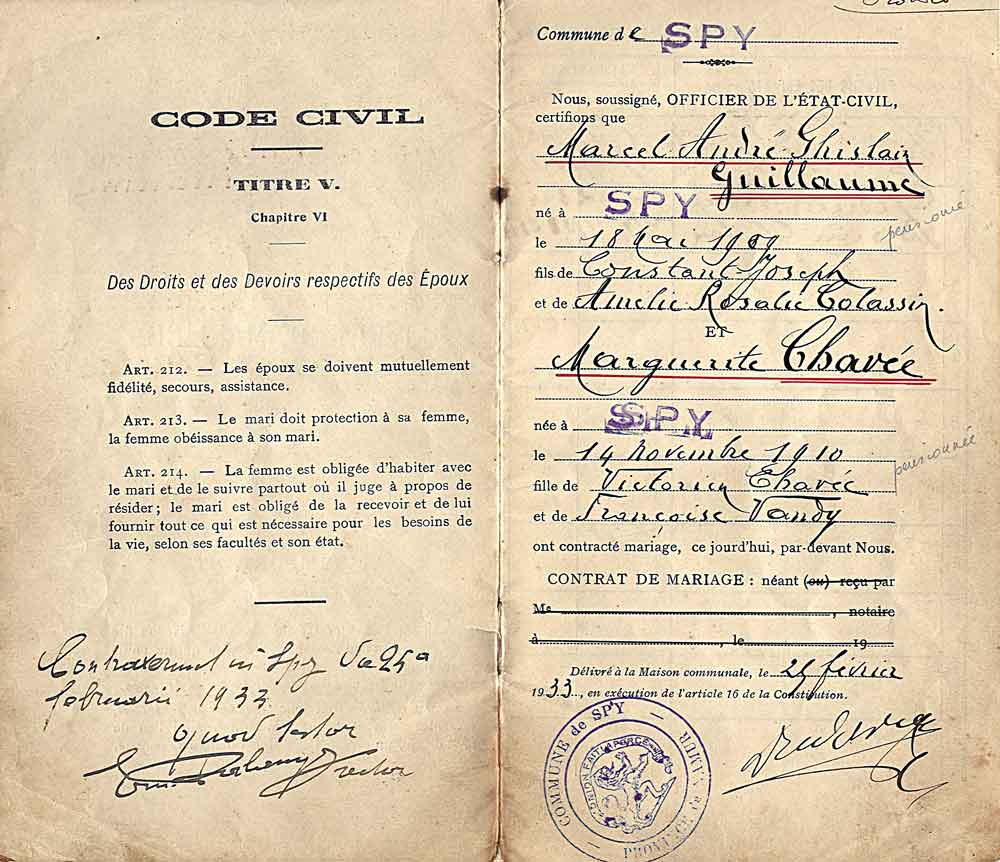 CODE CIVIL
TITRE V.
Chapitre VI
Des Droits et des Devoirs respectifs des Époux
ART. 212. — Les époux se doivent mutuellement
fidélité, secours, assistance.
ART. 213. — Le mari doit protection à sa femme,
la femme obéissance à son mari.
ART. 214. — La femme est obligée d'habiter avec
le mari et de le suivre partout où il juge à propos de
résider ; le mari est obligé de la recevoir et de lui
fournir tout ce qui est nécessaire pour les besoins de
la vie, selon ses facultés et son état.
in Spy 25a
februarii 1933
quod testor
Commune de SPY
Nous, soussigné, OFFICIER DE L'ÉTAT-CIVIL,
certifions que
Marcel André Ghislain
Guillaume
né à SPY
pensionné
le 18 Mai 1909
fils de Constant Joseph
et de Amelie Rosalie Colassin.
ET
Marguerite Chavée
née à SPY
le 14 novembre 1910
pensionnée
fille de Victorien Chavée
et de Françoise Vandy
ont contracté mariage, ce jourd'hui, par-devant Nous.
CONTRAT DE MARIAGE : néant (ou) reçu par
Me , notaire
à , le 19
Délivré à la Maison communale, le 25 février
1933, en exécution de l'article 16 de la Constitution.
COMMUNE de SPY — PROVINCE DE NAMUR —
L'UNION FAIT LA FORCE